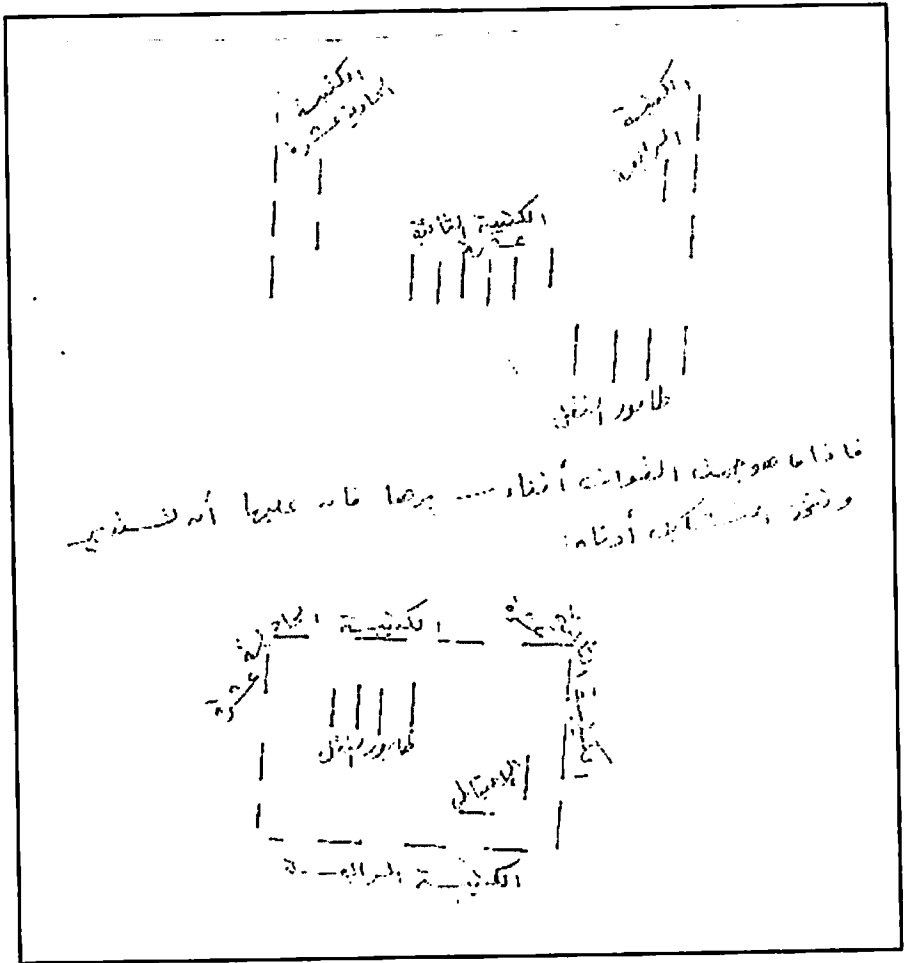 الكتيبة
الحادية عشرة
الكتيبة
الرابعة
الكتيبة الثانية
عشرة
طابور النقل
فاذا ما هوجمت القوات أثناء .... يرها فان عليها أن تستدير
وتتخذ الشكل أدناه:
الكتيبة الحادية
عشرة
الكتيبة الثانية عشرة
طابور النقل
الاحتياطي
الكتيبة الرابعة